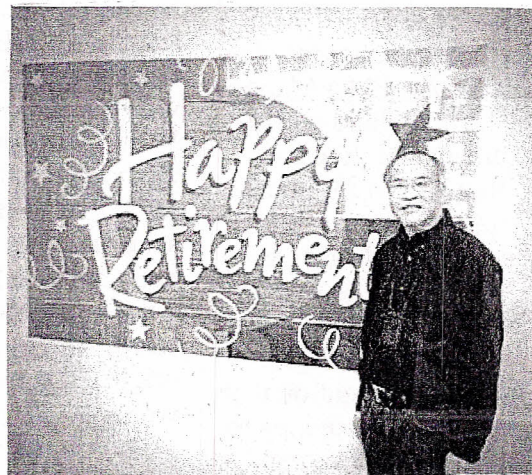 Happy
Retirement